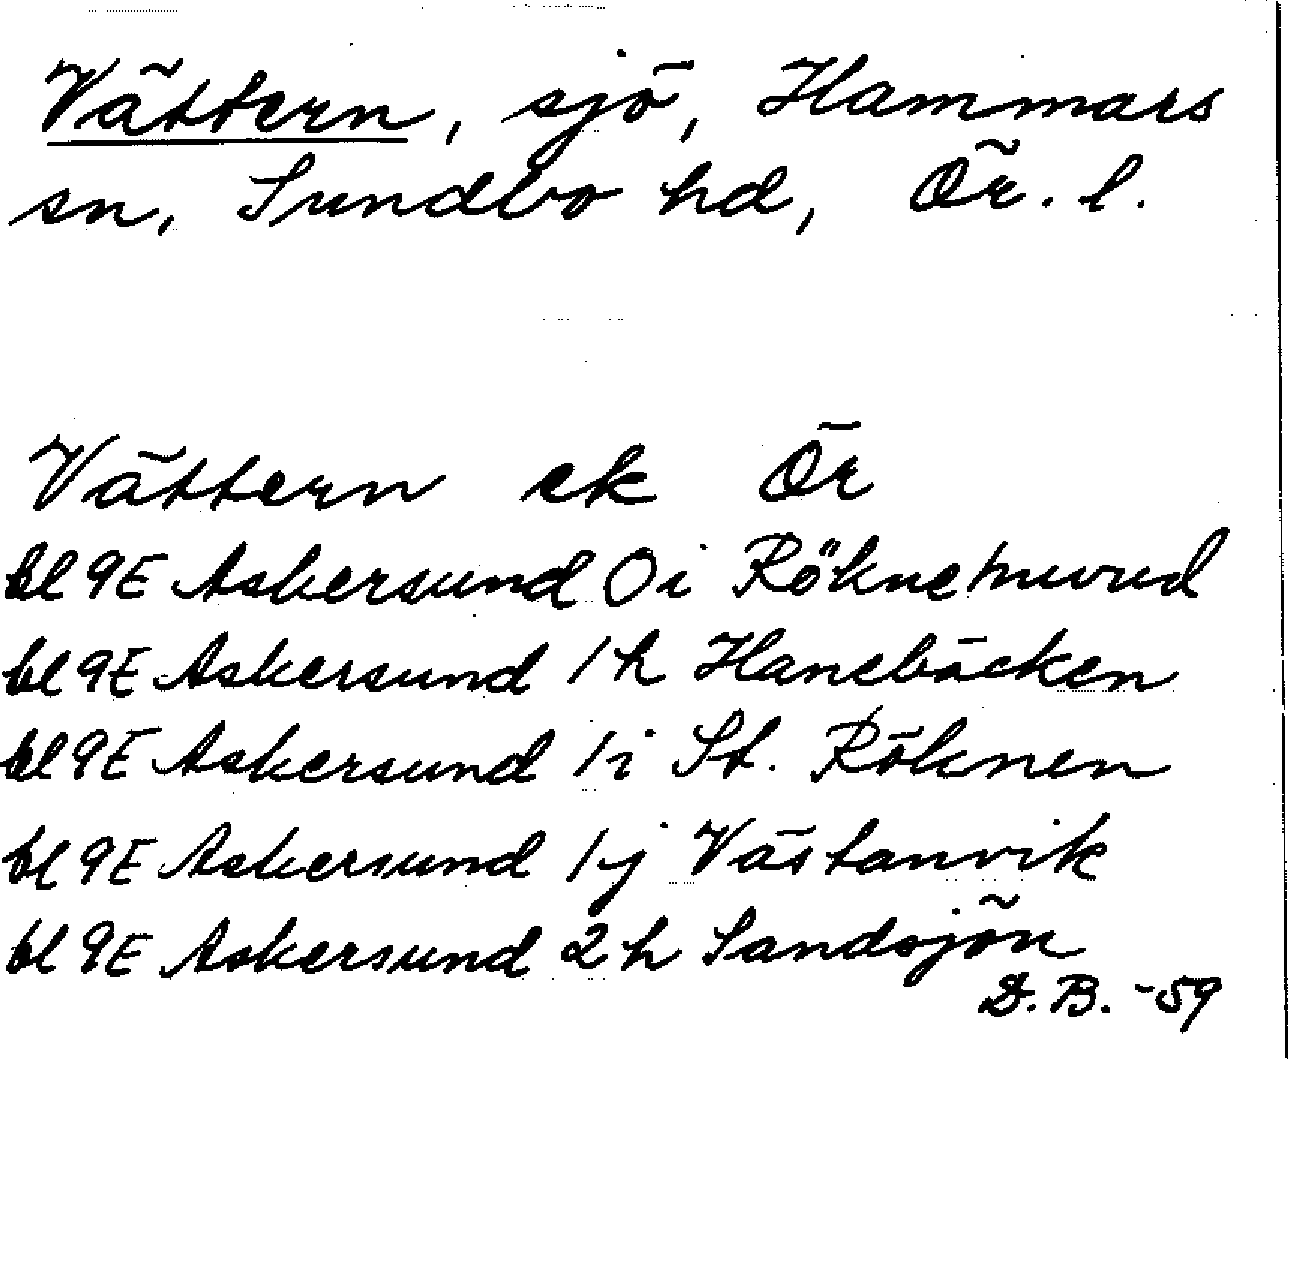 Vättern, sjö, Hammars
sn, Sundbo hd, Ör. l.
Vättern ek Ör
bl 9E Askersund 0i Röknehuvud
bl 9E Askersund 1h Hanebäcken
bl 9E Askersund 1i St. Röknen
bl 9E Askersund 1j Västanvik
bl 9E Askersund 2h Sandsjön
D.B. -59